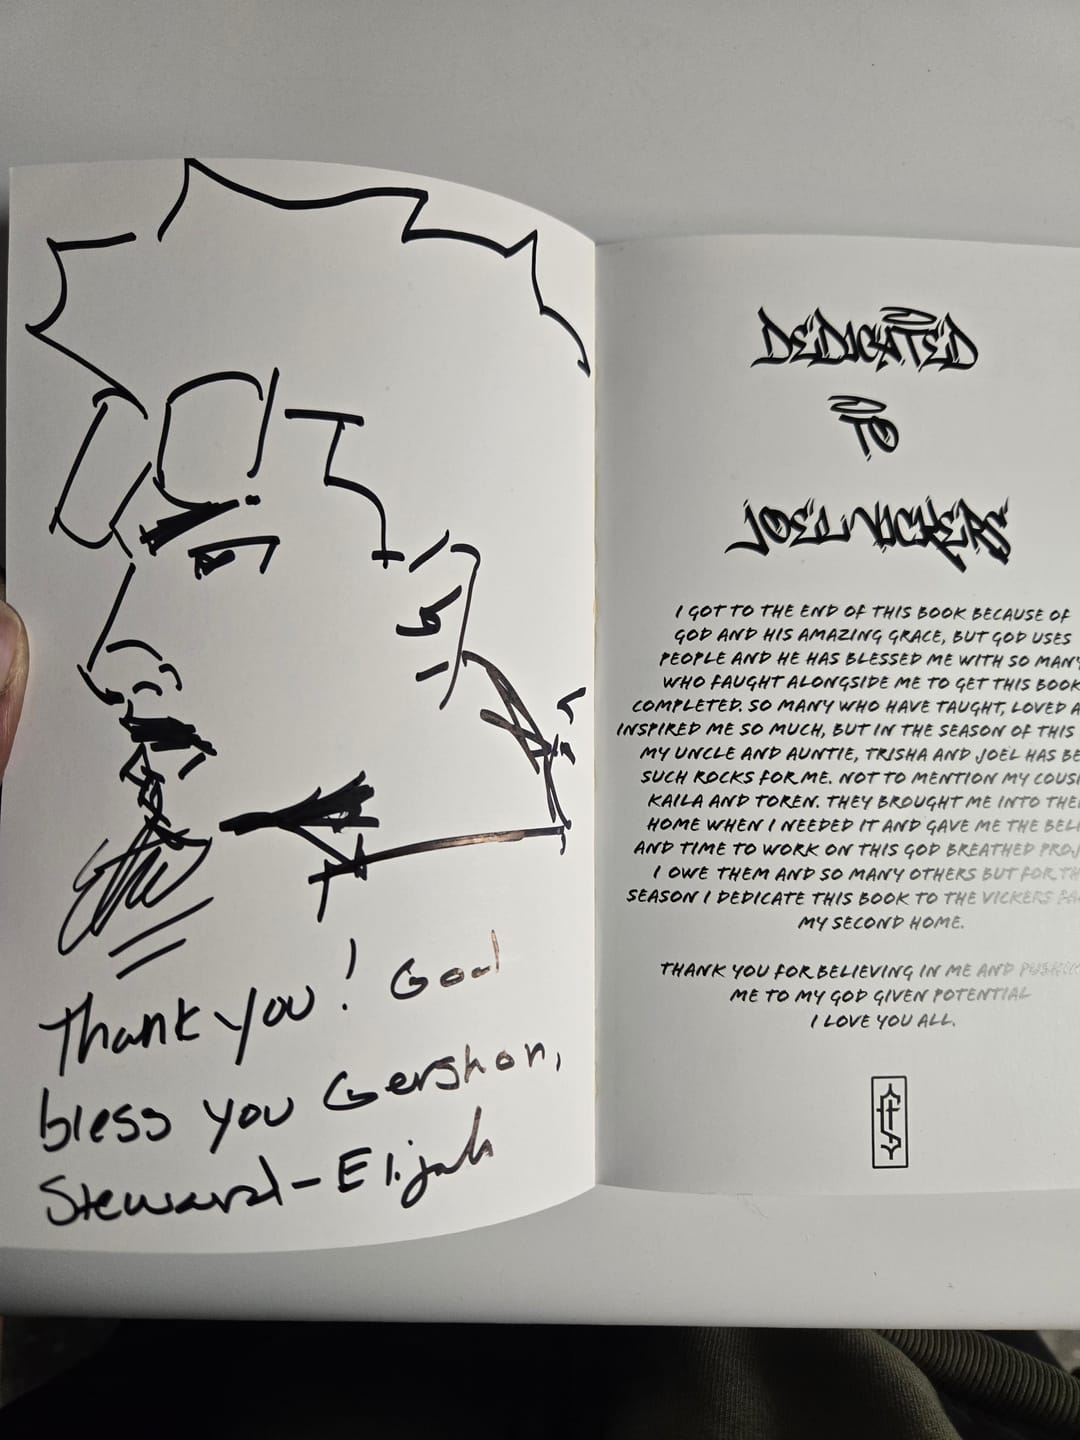 Thank you! God
bless you Gershon,
Steward-Elijah
DEDICATED
TO
JOEL VICKERS
I GOT TO THE END OF THIS BOOK BECAUSE OF
GOD AND HIS AMAZING GRACE, BUT GOD USES
PEOPLE AND HE HAS BLESSED ME WITH SO MANY
WHO FAUGHT ALONGSIDE ME TO GET THIS BOOK
COMPLETED. SO MANY WHO HAVE TAUGHT, LOVED A
INSPIRED ME SO MUCH, BUT IN THE SEASON OF THIS
MY UNCLE AND AUNTIE, TRISHA AND JOEL HAS BE
SUCH ROCKS FOR ME. NOT TO MENTION MY COUSI
KAILA AND TOREN. THEY BROUGHT ME INTO THE
HOME WHEN I NEEDED IT AND GAVE ME THE BELI
AND TIME TO WORK ON THIS GOD BREATHED PROJ
I OWE THEM AND SO MANY OTHERS BUT FOR TH
SEASON I DEDICATE THIS BOOK TO THE VICKERS FA
MY SECOND HOME.
THANK YOU FOR BELIEVING IN ME AND PUSHIN
ME TO MY GOD GIVEN POTENTIAL
I LOVE YOU ALL.